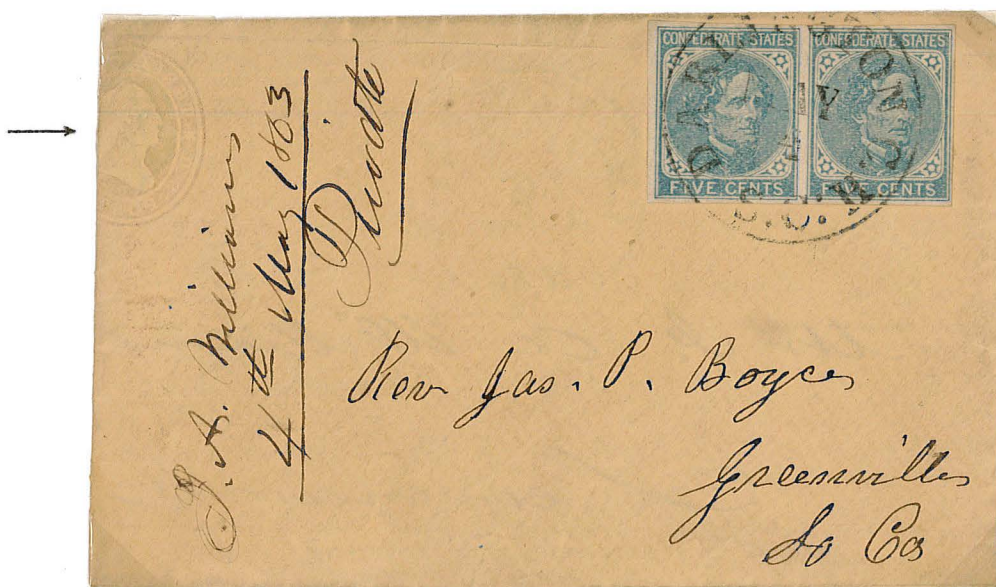 CONFEDERATE STATES CONFEDERATE STATES
FIVE CENTS FIVE CENTS
DARLINGTON
S.C.
J. A. Williams
4th May 1863
Private
Rev Jas. P. Boyce
Greenville
So Ca